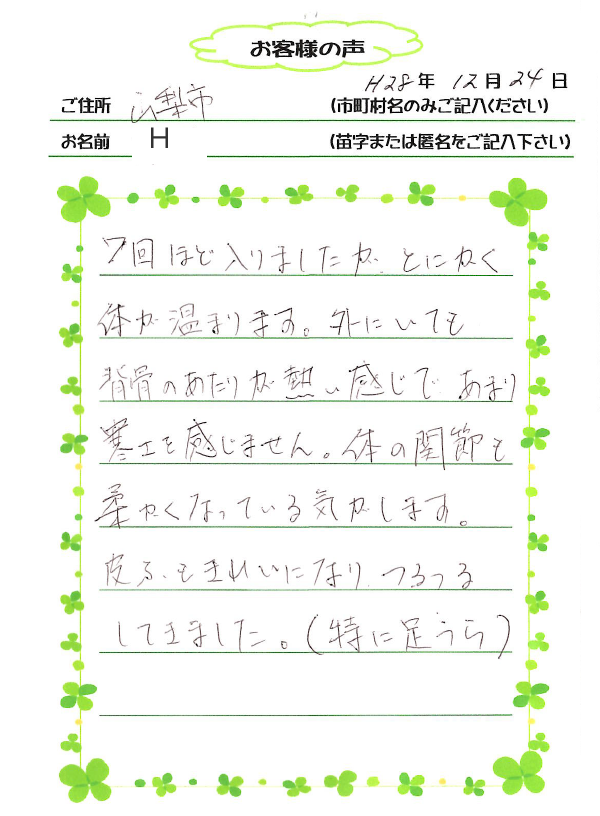 お客様の声
H28年 12月24日
ご住所 山梨市 (市町村名のみご記入ください)
お名前 H (苗字または匿名をご記入下さい)
7回ほど入りましたが、とにかく
体が温まります。外にいても
背骨のあたりが熱い感じで、あまり
寒さを感じません。体の関節も
柔かくなっている気がします。
皮ふもきれいになり、つるつる
してきました。(特に足うら)